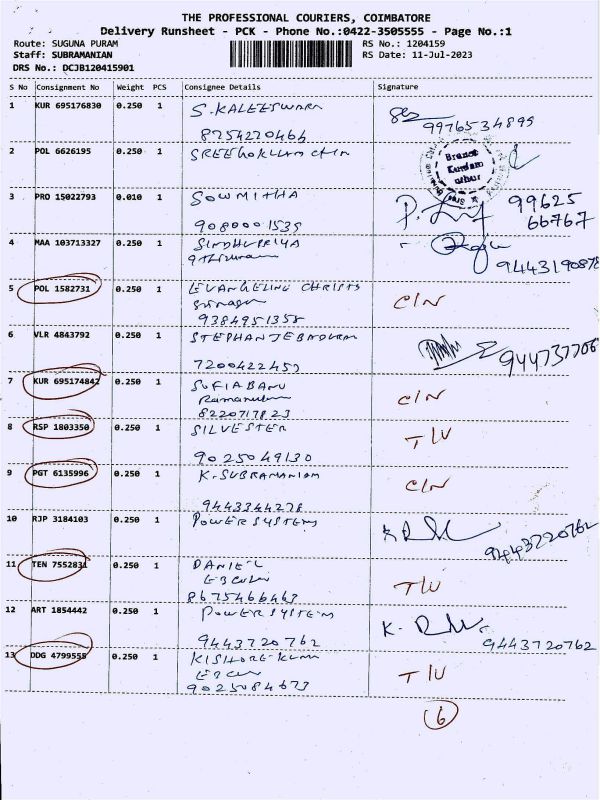 THE PROFESSIONAL COURIERS, COIMBATORE
Delivery Runsheet - PCK - Phone No.:0422-3505555 - Page No.:1
Route: SUGUNA PURAM
RS No.: 1204159
Staff: SUBRAMANIAN
RS Date: 11-Jul-2023
DRS No.: DCJB120415901
S No Consignment No Weight PCS Consignee Details Signature
1 KUR 695176830 0.250 1 S.KALEESWARA
8254220464 99765 34899
2 POL 6626195 0.250 1 SREEGOKULAM CHIN
Branch
3 PRO 15022793 0.010 1 SOWMITHA
9080001535 99625
66767
4 MAA 103713327 0.250 1 SINDHUPRIYA
9443190878
5 POL 1582731 0.250 1 EVANGELINE CHRISTS C/N
9384951358
6 VLR 4843792 0.250 1 STEPHAN
7200422453 944737706
7 KUR 695174842 0.250 1 SOFIA BANU C/N
8220717823
8 RSP 1803350 0.250 1 SILVESTER T/U
9025049130
9 PGT 6135996 0.250 1 K.SUBRAMANIAM C/N
9443344278
10 RJP 3184103 0.250 1 POWER SYSTEM
9443720762
11 TEN 7552831 0.250 1 DANIEL T/U
8675466463
12 ART 1854442 0.250 1 POWER SYSTEM
9443720762 9443720762
13 DDG 4799555 0.250 1 KISHORE KUMA T/U
9025084673
6